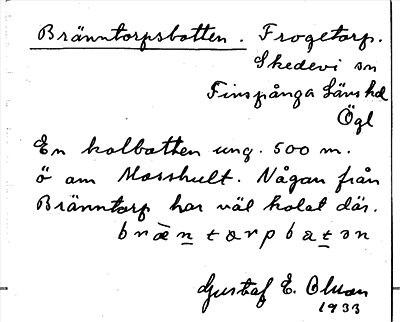 Bränntorpsbotten. Frogetorp.
Skedevi sn
Finspånga Läns hd
Ögl
En kolbotten ung. 500 m.
ö om Mosshult. Någon från
Bränntorp har väl kolat där.
bræ̀ntorpbo̱t̲ən
Gustaf E. Olson
1933